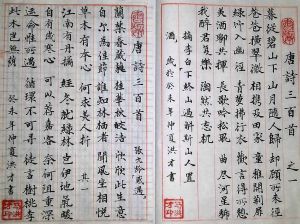 唐詩三百首 之一
暮從碧山下 山月隨人歸 却顧所來徑
蒼蒼橫翠微 相攜及田家 童稚開荊扉
綠竹入幽徑 青蘿拂行衣 歡言得所憩
美酒聊共揮 長歌吟松風 曲盡河星稀
我醉君復樂 陶然共忘機
摘李白下終山過斛斯山人置
酒 癸未年仲夏洪才書
唐詩三百首 張九齡感遇
蘭葉春葳蕤 桂華秋皎潔 欣欣此生意
自爾為佳節 誰知林棲者 聞風坐相悅
草木有本心 何求美人折
江南有丹橘 經冬猶綠林 豈伊地氣暖
自有歲寒心 可以薦嘉客 奈何阻重深
運命唯所遇 循環不可尋 徒言樹桃李
此木豈無陰 癸未年仲夏洪才書